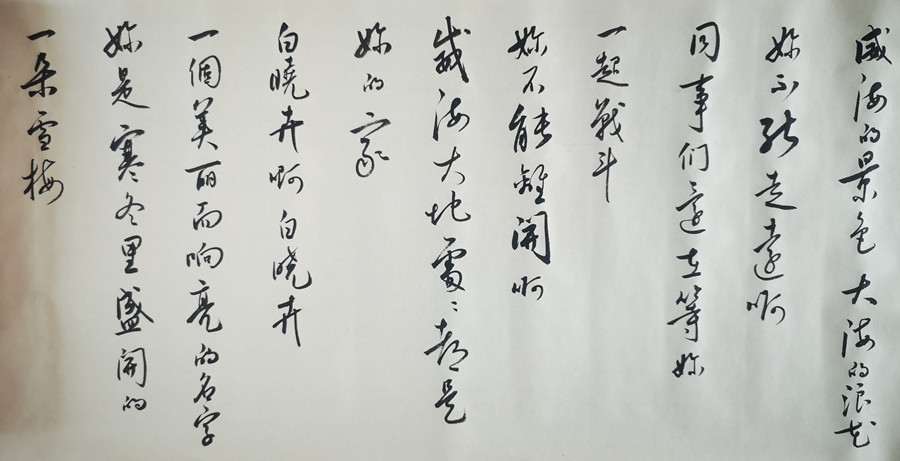 威海的景色大海的浪花
妳不能走遠啊
同事们還在等妳
一起戰斗
妳不能離開啊
威海大地處〻都是
妳的家
白曉卉啊白曉卉
一個美丽而响亮的名字
妳是寒冬里盛開的
一朵雪梅